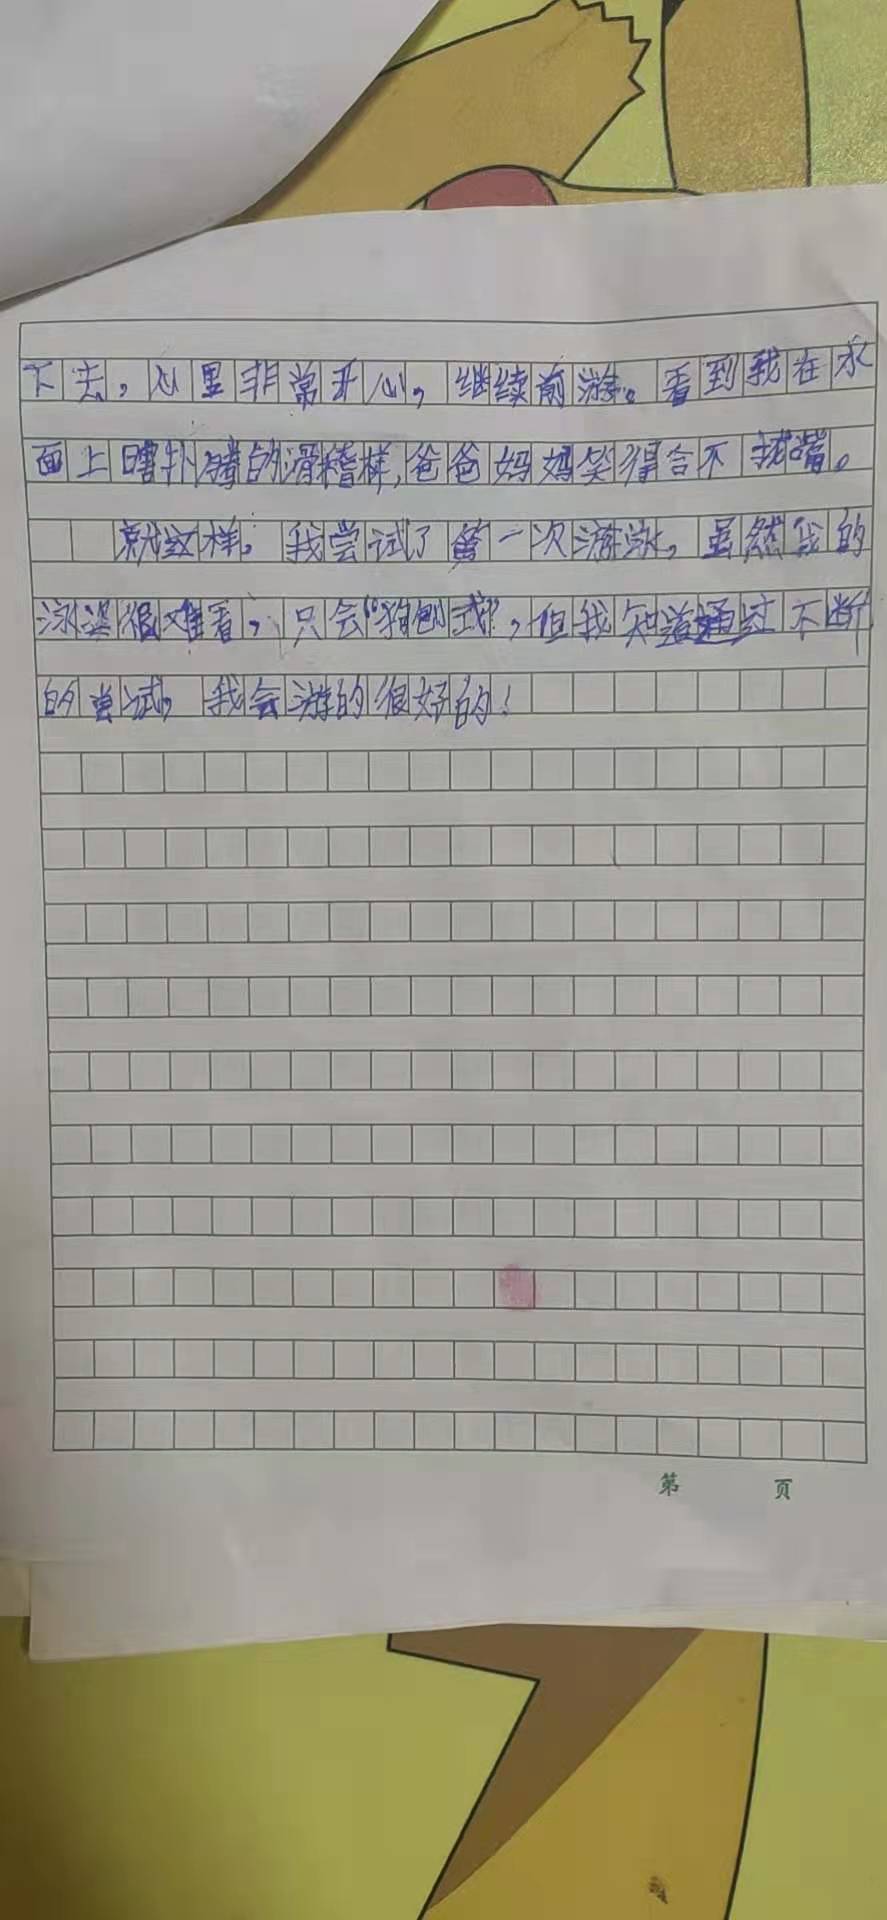 下去，心里非常开心，继续前游。看到我在水
面上瞎扑腾的滑稽样，爸爸妈妈笑得合不拢嘴。
就这样，我尝试了第一次游泳，虽然我的
泳姿很难看，只会“狗刨式”，但我知道通过不断
的尝试，我会游的很好的！
第 页